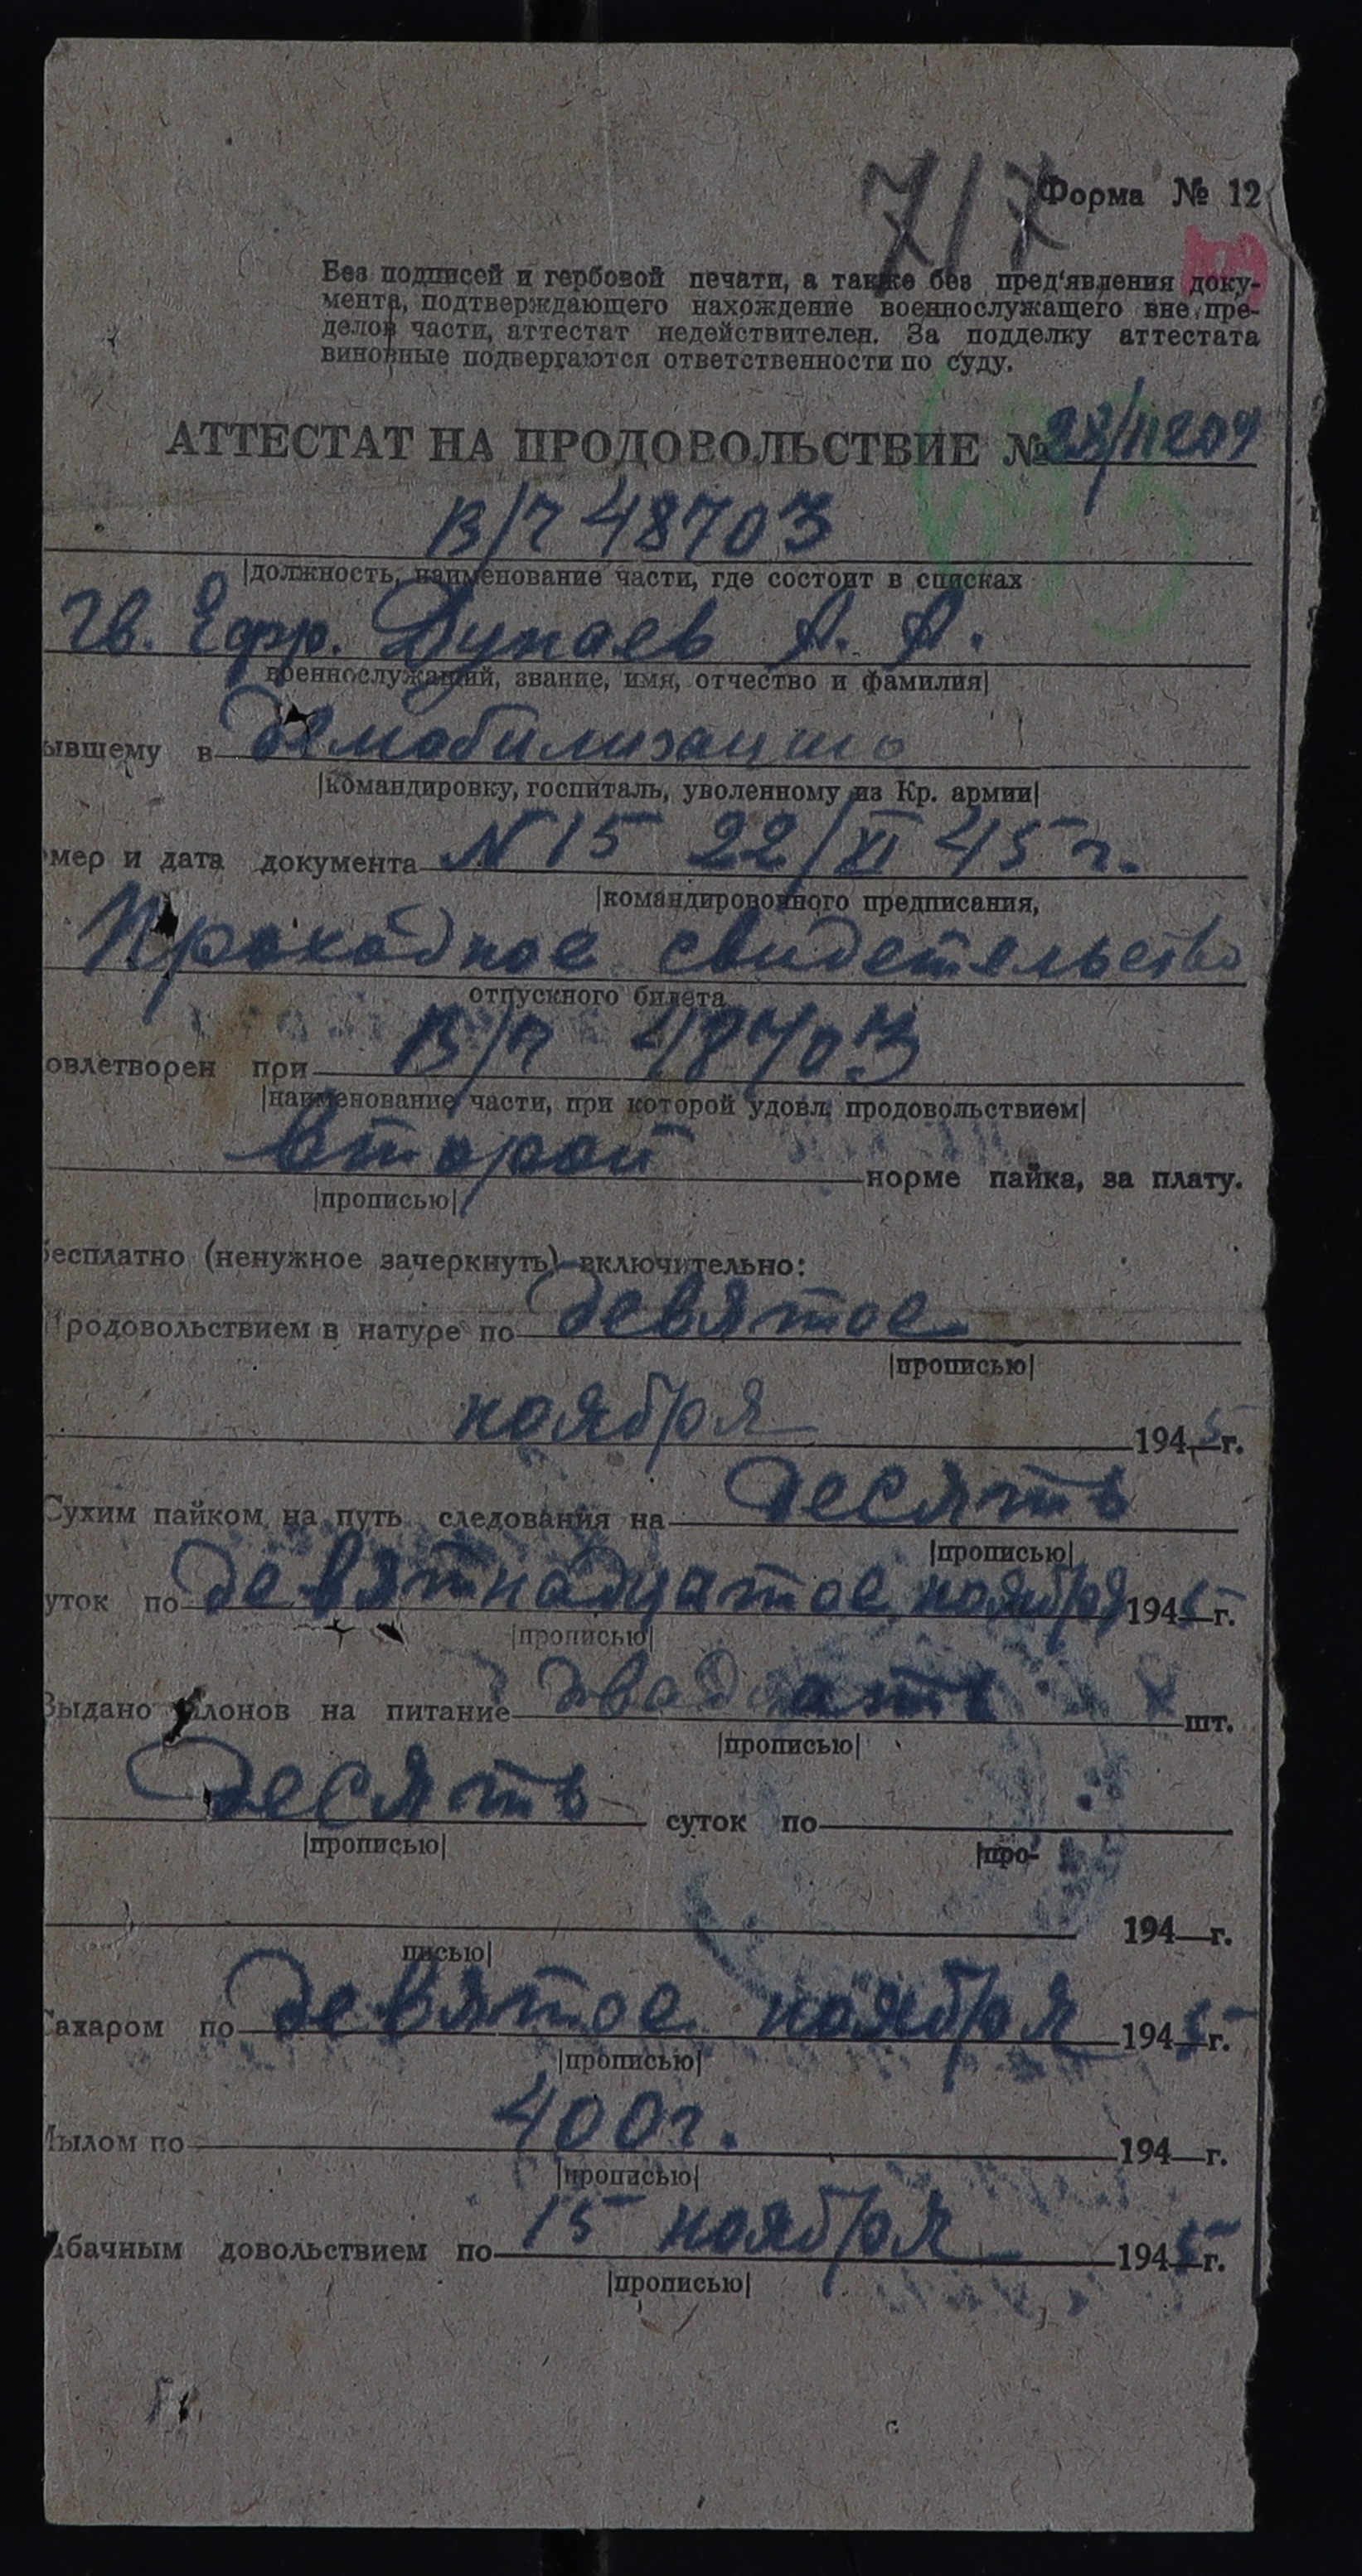 717
Форма № 12
Без подписей и гербовой печати, а также без пред'явления доку-
мента, подтверждающего нахождение военнослужащего вне пре-
делов части, аттестат недействителен. За подделку аттестата
виновные подвергаются ответственности по суду.
АТТЕСТАТ НА ПРОДОВОЛЬСТВИЕ № 28/11209
В/ч 48703
|должность, наименование части, где состоит в списках
гв. Ефр. Дунаев А. А.
военнослужащий, звание, имя, отчество и фамилия|
ывшему в Демобилизацию
|командировку, госпиталь, уволенному из Кр. армии|
мер и дата документа N 15 22/XI 45 г.
|командировочного предписания,
Проходное свидетельство
отпускного билета
овлетворен при В/ч 48703
|наименование части, при которой удовл. продовольствием|
второй норме пайка, за плату.
|прописью|
бесплатно (ненужное зачеркнуть) включительно:
Продовольствием в натуре по девятое
|прописью|
ноября 1945 г.
Сухим пайком на путь следования на десять
|прописью|
уток по девятнадцатое ноября 1945 г.
|прописью|
Выдано талонов на питание двадцать шт.
|прописью|
Десять суток по
|прописью| |про-
194 г.
писью|
Сахаром по девятое ноября 1945 г.
|прописью|
Мылом по 400 г. 194 г.
|прописью|
абачным довольствием по 15 ноября 1945 г.
|прописью|